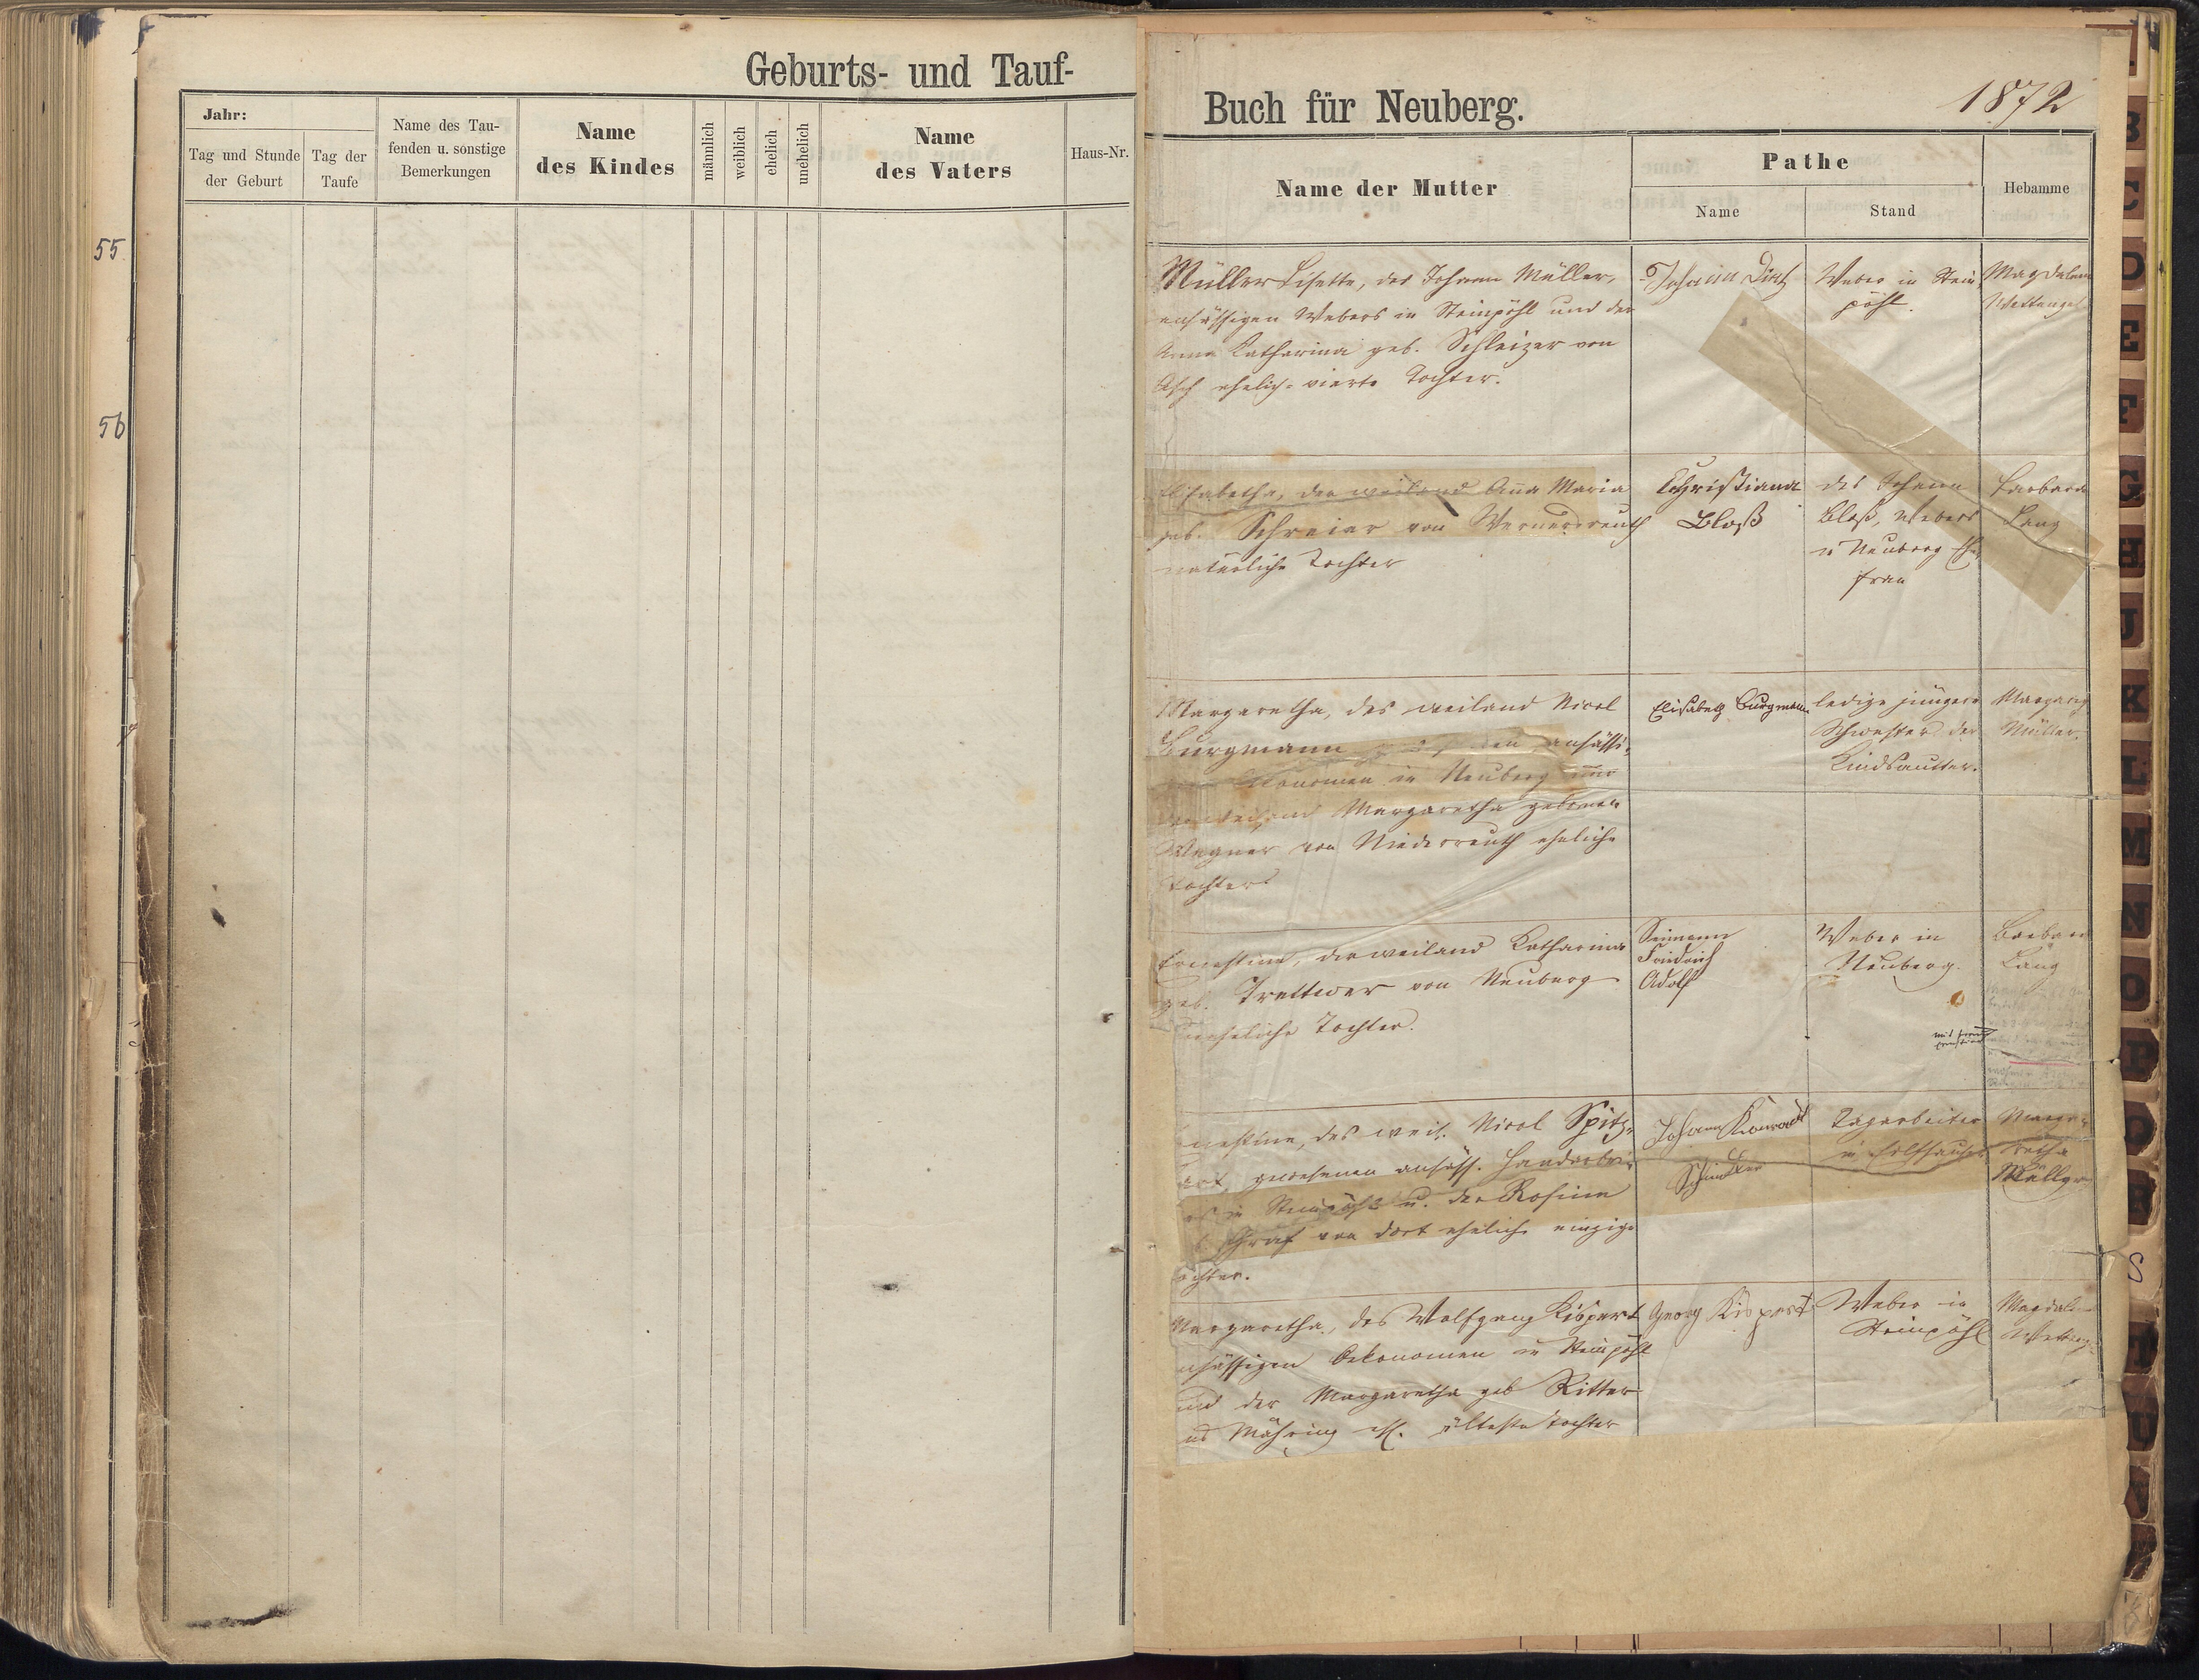 Geburts- und Tauf-
Jahr:
Tag und Stunde
der Geburt
Tag der
Taufe
Name des Tau-
fenden u. sonstige
Bemerkungen
Name
des Kindes
männlich
weiblich
ehelich
unehelich
Name
des Vaters
Haus-Nr.
55
56
Buch für Neuberg.
1872
Name der Mutter
Pathe
Name
Stand
Hebamme
Müller Lisette, des Johann Müller,
ansässigen Webers in Steinpöhl und der
Anna Katharina geb. Schleizer von
Asch ehelich-vierte Tochter.
Johann
Weber in Stein-
pöhl.
Magdalena
Elisabetha, der weiland Anna Maria
geb. Schreier von Wernersreuth
natürliche Tochter
Christiana
Bloß
des Johann
Bloß, Webers
in Neuberg Ehe-
frau
Barbara
Lang
Margaretha, des weiland Nicol
Burgmann ansässi-
Oekonomen in Neuberg und
weiland Margaretha geborenen
Wagner von Niederreuth eheliche
Tochter
Elisabetha Burgmann
ledige jüngere
Schwester der
Kindsmutter.
Margareth
Müller.
Ernestine, der weiland Katharina
geb. Trettwer von Neuberg
uneheliche Tochter.
Friedrich
Adolf
Weber in
Neuberg.
Barbara
Lang
nestine, des weil. Nicol Spitz-
gewesenen ansäss. Handarbei-
in Steinpöhl u. der Rosine
Graf von dort eheliche einzige
ochter.
Johann Konrad
Schindler
Tagarbeiter
in
Marga-
retha
Müller
Margaretha, des Wolfgang Kispert
nsässigen Oekonomen in Steinpöhl
und der Margaretha geb Ritter
aus Mähring ehl. älteste Tochter
Georg Kispert
Weber in
Steinpöhl
Magdalena
B
C
D
E
F
G
H
J
K
L
M
N
O
P
R
S
T
U